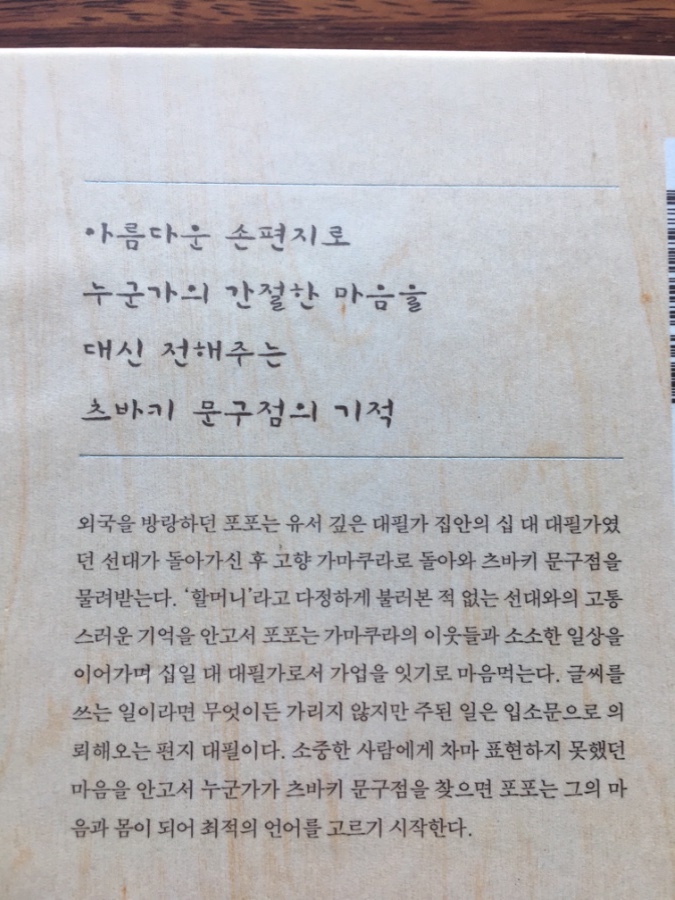 아름다운 손편지로
누군가의 간절한 마음을
대신 전해주는
츠바키 문구점의 기적
외국을 방랑하던 포포는 유서 깊은 대필가 집안의 십 대 대필가였
던 선대가 돌아가신 후 고향 가마쿠라로 돌아와 츠바키 문구점을
물려받는다. ‘할머니’라고 다정하게 불러본 적 없는 선대와의 고통
스러운 기억을 안고서 포포는 가마쿠라의 이웃들과 소소한 일상을
이어가며 십일 대 대필가로서 가업을 잇기로 마음먹는다. 글씨를
쓰는 일이라면 무엇이든 가리지 않지만 주된 일은 입소문으로 의
뢰해오는 편지 대필이다. 소중한 사람에게 차마 표현하지 못했던
마음을 안고서 누군가가 츠바키 문구점을 찾으면 포포는 그의 마
음과 몸이 되어 최적의 언어를 고르기 시작한다.